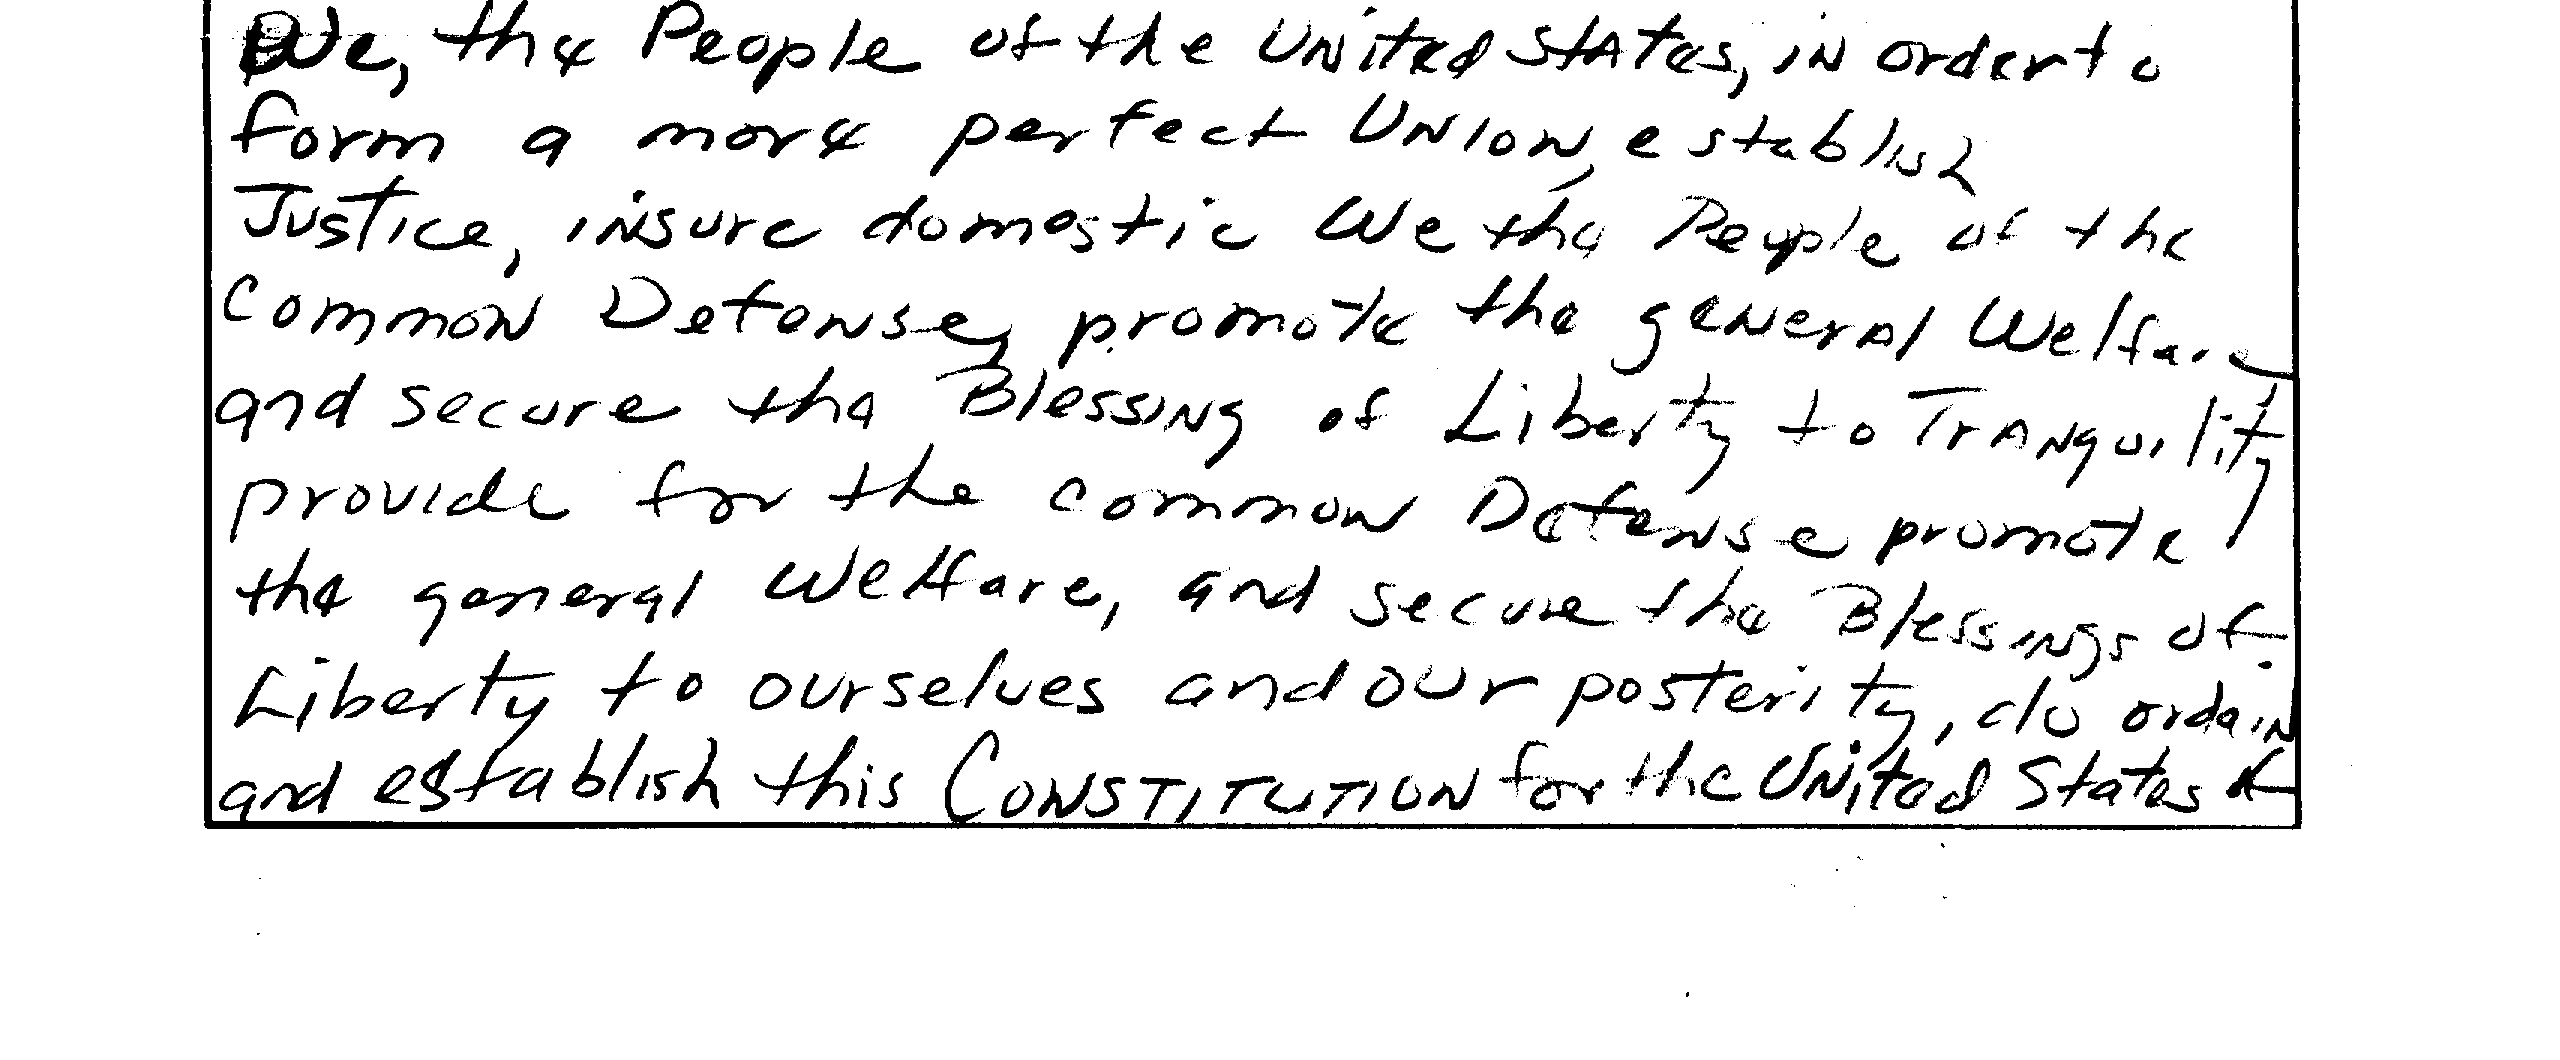 We, the People of the United States, in order to
form a more perfect Union, establish
Justice, insure domestic We the People of the
Common Defense, promote the general Welfare,
and secure the Blessing of Liberty to Tranquility
provide for the common Defense promote
the general Welfare, and secure the Blessings of
Liberty to ourselves and our posterity, do ordain
and establish this CONSTITUTION for the United States of